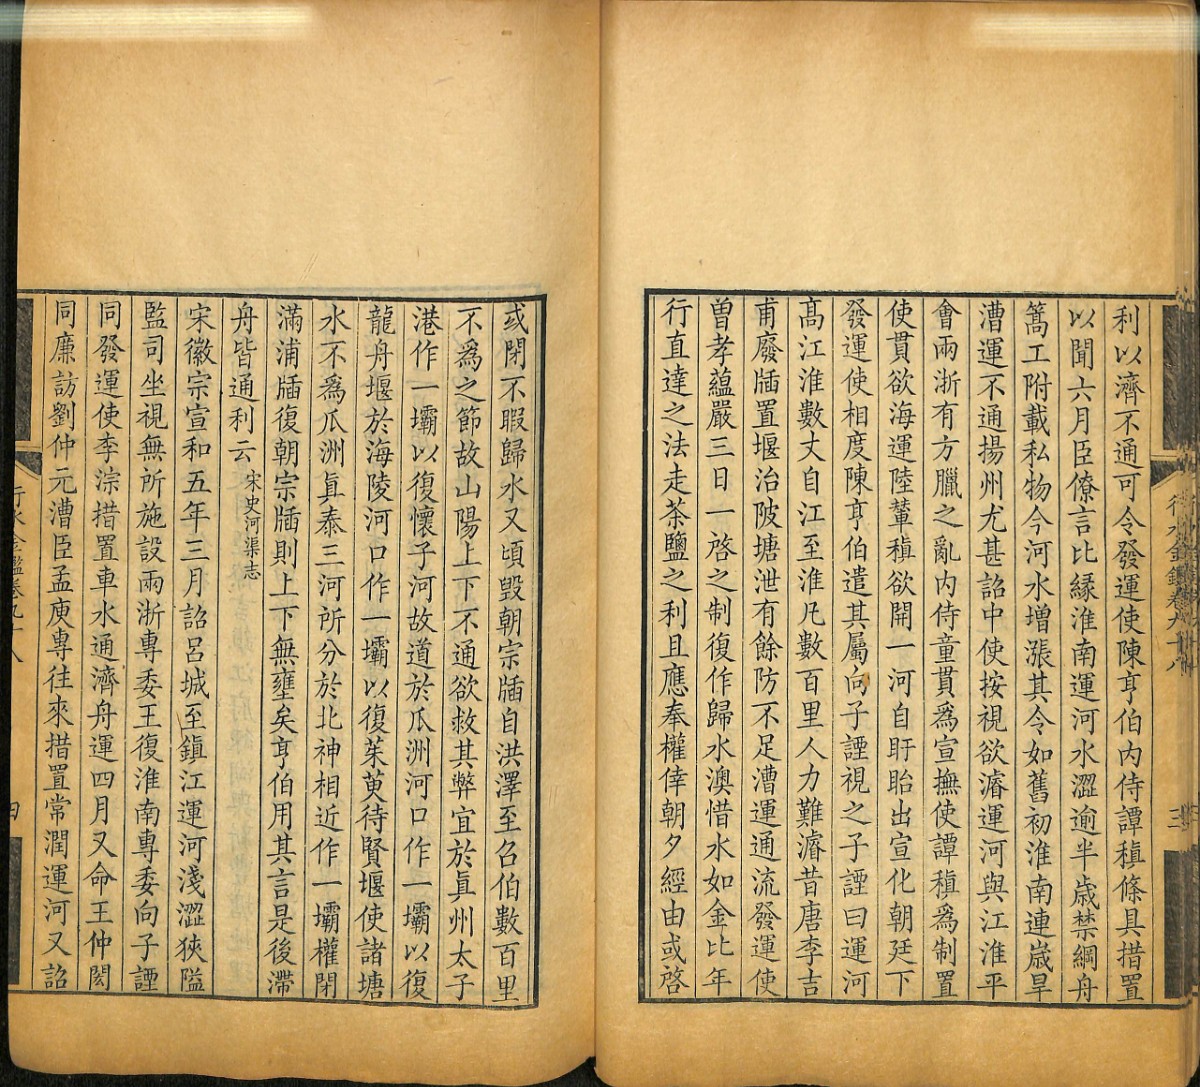 利以濟不通可令發運使陳亨伯内侍譚稹條具措置
以聞六月臣僚言比緣淮南運河水澀逾半歲禁綱舟
篙工附載私物今河水增漲其令如舊初淮南連歲旱
漕運不通揚州尤甚詔中使按視欲濬運河與江淮平
會兩浙有方臘之亂内侍童貫為宣撫使譚稹為制置
使貫欲海運陸輦稹欲開一河自盱眙出宣化朝廷下
發運使相度陳亨伯遣其屬向子諲視之子諲曰運河
高江淮數丈自江至淮凡數百里人力難濬昔唐李吉
甫廢牐置堰治陂塘泄有餘防不足漕運通流發運使
曽孝蘊嚴三日一啓之制復作歸水澳惜水如金比年
行直達之法走茶鹽之利且應奉權倖朝夕經由或啓
行水金鑑卷九十八
三
或閉不暇歸水又頃毀朝宗牐自洪澤至召伯數百里
不為之節故山陽上下不通欲救其弊宜於眞州太子
港作一壩以復懷子河故道於瓜洲河口作一壩以復
龍舟堰於海陵河口作一壩以復茱萸待賢堰使諸塘
水不為瓜洲眞泰三河所分於北神相近作一壩權閉
滿浦牐復朝宗牐則上下無壅矣亨伯用其言是後滯
舟皆通利云宋史河渠志
宋徽宗宣和五年三月詔呂城至鎭江運河淺澀狹隘
監司坐視無所施設兩浙專委王復淮南專委向子諲
同發運使李淙措置車水通濟舟運四月又命王仲閎
同廉訪劉仲元漕臣孟庾專往來措置常潤運河又詔
行水金鑑卷九十八
四